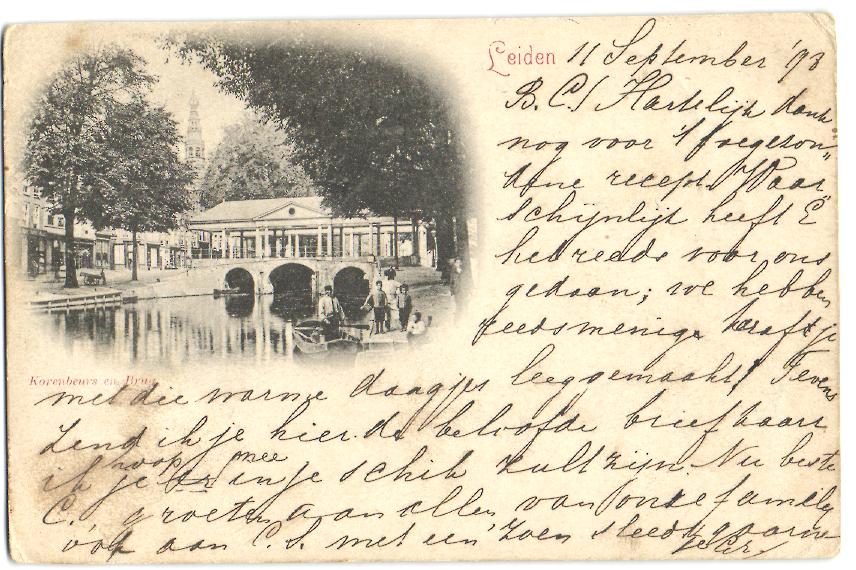 Leiden 11 September '98
B.C! Hartelijk dank
nog voor 't toegezon„
dene recept. Waar„
schijnlijk heeft E
het reeds voor ons
gedaan; we hebben
reeds menige karaf je
Korenbeurs en Brug
met die warme daagjes leeggemaakt! Tevens
zend ik je hier de beloofde briefkaart
hoop mee
ik je er in je schik zult zijn. Nu beste
C. groeten aan allen van onze familie
óók aan C. S. met een zoen steeds gaarne